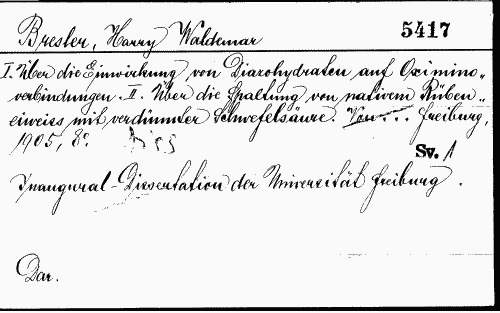 Bresler, Harry Waldemar 5417
I. Über die Einwirkung von Diazohydraten auf Oximino-
verbindungen. II. Über die Spaltung von nativem Rüben-
eiweiss mit verdünnter Schwefelsäure. Von... Freiburg,
1905, 8°. Diss
Sv. A
Inaugural-Dissertation der Universität Freiburg.
Dar.